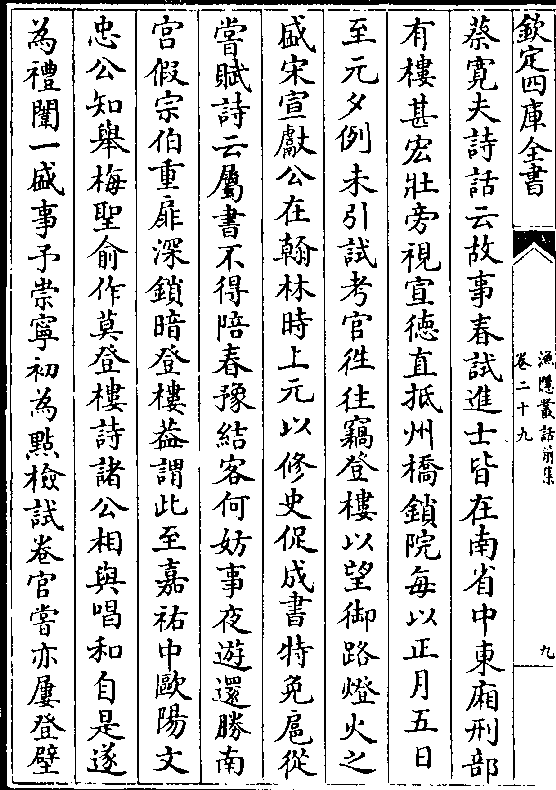 欽定四庫全書
漁隱叢話前集
卷二十九
九
蔡寛夫詩話云故事春試進士皆在南省中東廂刑部
有樓甚宏壯旁視宣徳直抵州橋鎖院每以正月五日
至元夕例未引試考官徃往竊登樓以望御路燈火之
盛宋宣獻公在翰林時上元以修史促成書特免扈從
嘗賦詩云屬書不得陪春豫結客何妨事夜遊還勝南
宫假宗伯重扉深鎖暗登樓葢謂此至嘉祐中歐陽文
忠公知舉梅聖俞作莫登樓詩諸公相與唱和自是遂
為禮闈一盛事予崇寧初為點檢試卷官嘗亦屢登壁